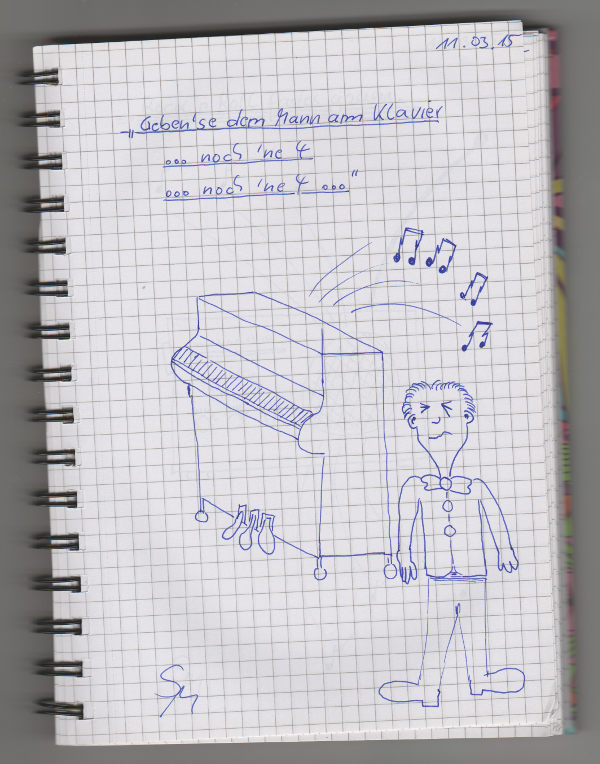 11.03.15
„Geben'se dem Mann am Klavier
... noch 'ne 4
... noch 'ne 4 ..."